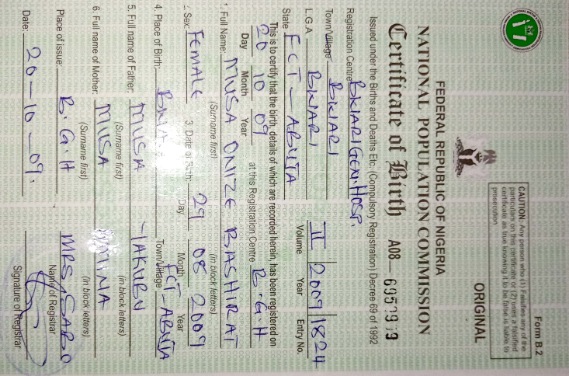 Form B.2
CAUTION: Any person who (1) Falsifies any of the
particulars on this certificate or (2) uses a falsified
certificate as true knowing it to be false is liable to
prosecution
ORIGINAL
FEDERAL REPUBLIC OF NIGERIA
NATIONAL POPULATION COMMISSION
Certificate of Birth A08
Issued under the Births and Deaths Etc. (Compulsory Registration) Decree 69 of 1992
Registration Centre BWARI GEN. HOSP
Town/Village BWARI
L.G.A BWARI
State FCT-ABUJA
II 2009 1824
Volume Year Entry No.
This is to certify that the birth, details of which are recorded herein, has been registered on
20 10 09 at this Registration Centre B.G.H
Day Month Year
1. Full Name: MUSA ONIZE BASHIRAT
(Surname first) (in block letters)
2. Sex: FEMALE 3. Date of Birth: 29 08 2009
Day Month Year
4. Place of Birth: FCT-ABUJA
Town/Village
5. Full name of Father: MUSA YAKUBU
(Surname first) (in block letters)
6. Full name of Mother: MUSA
(Surname first) (in block letters)
Place of issue: B.G.H MRS SABO
Name of Registrar
Date: 20-10-09.
Signature of Registrar